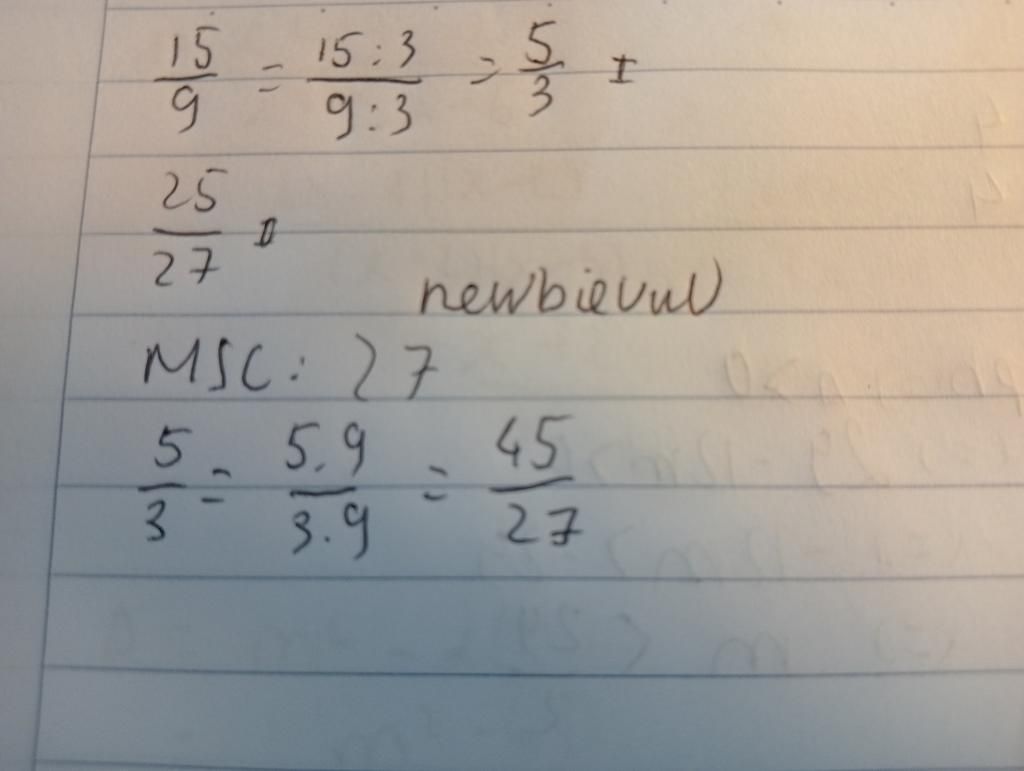 15/9 = 15:3/9:3 = 5/3
25/27
newbievul
MSC: 27
5/3 = 5.9/3.9 = 45/27